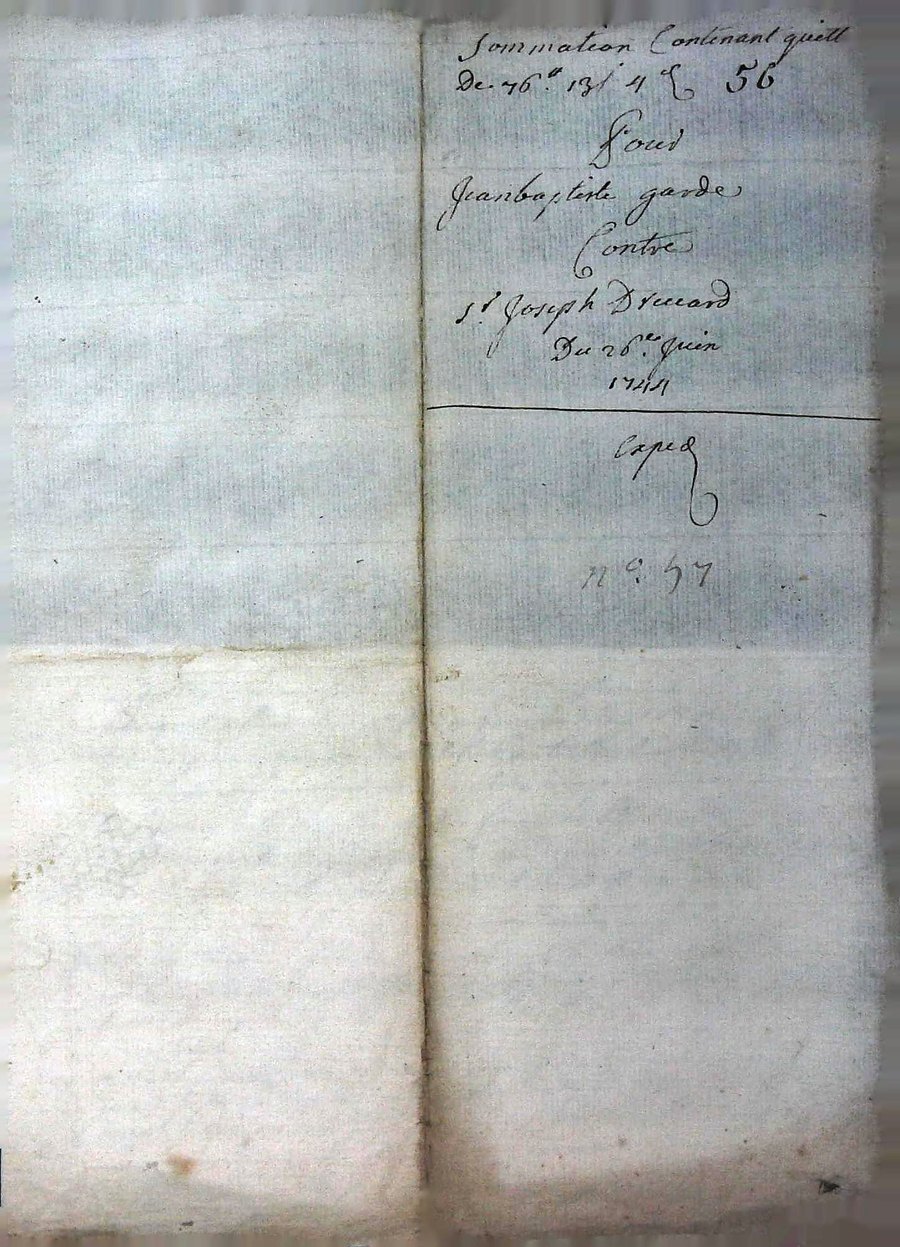 Sommation Contenant quitt
De 76# 13s 4d 56
Pour
Jeanbaptiste garde
Contre
Sr Joseph Drouard
Du 26e Juin
1744
Exped
no. 57